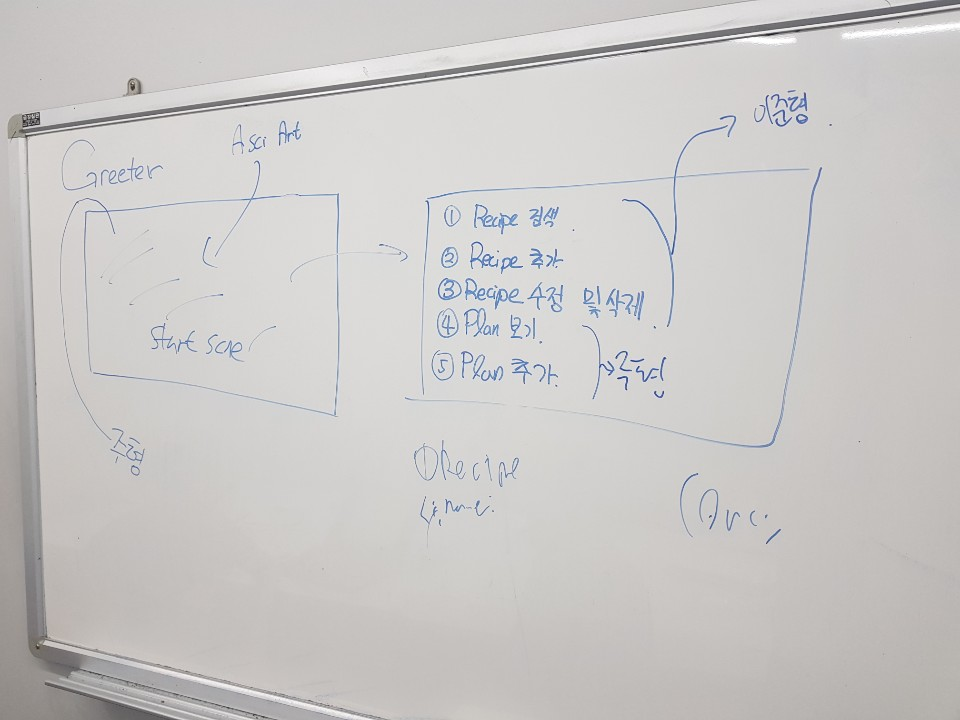 Greeter
Asci Art
start scre
주형
이준형
① Recipe 검색.
② Recipe 추가.
③ Recipe 수정 및 삭제.
④ Plan 보기.
⑤ Plan 추가.
주형
① Recipe